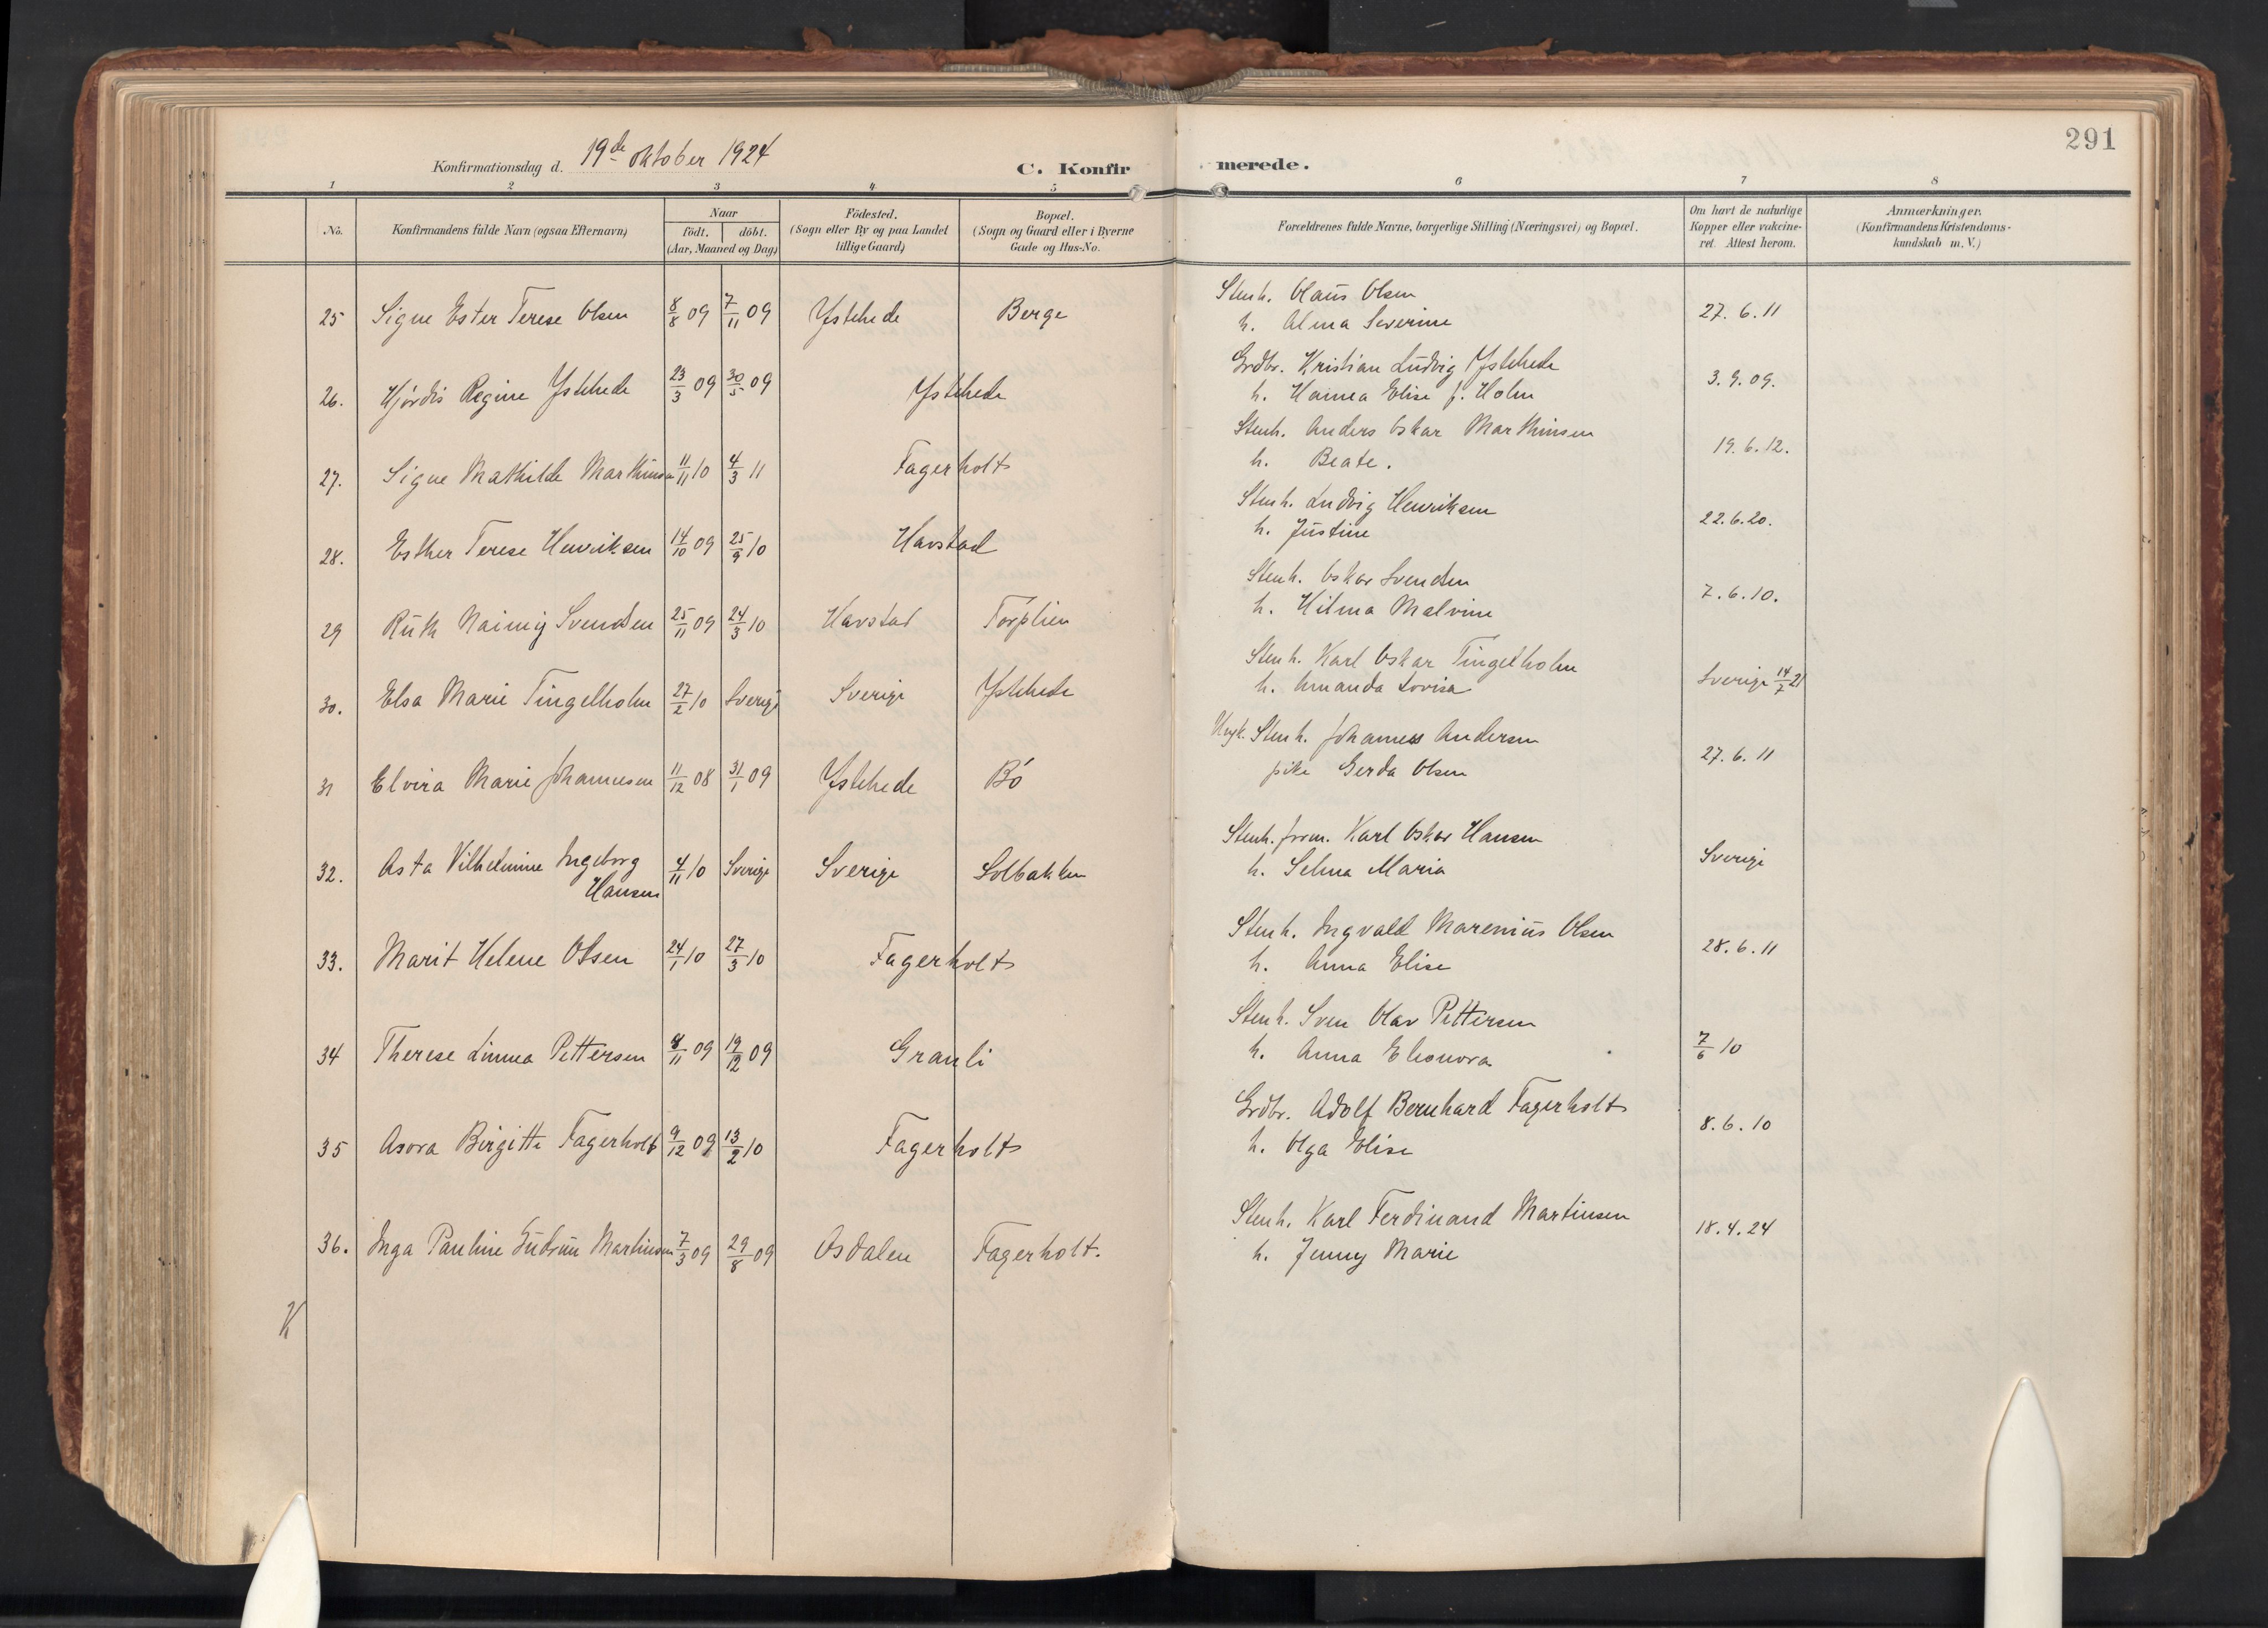 291
Konfirmationsdag d. 19de oktober 1924
C. Konfirmerede.
1 2 3 4 5 6 7 8
No.
Konfirmandens fulde Navn (ogsaa Efternavn)
Naar
födt. | döbt.
(Aar, Maaned og Dag)
Födested.
(Sogn eller By og paa Landet
tillige Gaard)
Bopæl.
(Sogn og Gaard eller i Byerne
Gade og Hus-No.
Forældrenes fulde Navne, borgerlige Stilling (Næringsvei) og Bopæl.
Om havt de naturlige
Kopper eller vakcine-
ret. Attest herom.
Anmærkninger.
(Konfirmandens Kristendoms-
kundskab m. V.)
25 Signe Ester Terese Olsen 8/8 09 7/11 09 Ystehede Berge
Stenh. Olaus Olsen
h. Alma Severine
27. 6. 11
26. Hjørdis Regine Ystehede 23/3 09 30/5 09 Ystehede
Grdbr. Kristian Ludvig Ystehede
h. Hanna Elise f. Holm
3. 9. 09.
27. Signe Mathilde Marthinsen 11/11 10 4/3 11 Fagerholt
Stenh. Anders Oskar Marthinsen
h. Beate.
19. 6. 12.
28. Esther Terese Henriksen 14/10 09 25/9 10 Havstad
Stenh. Ludvig Henriksen
h. Justine
22. 6. 20.
29 Ruth Svendsen 25/11 09 24/3 10 Havstad Torplien
Stenh. Oskar Svendsen
h. Hilma Malvine
7. 6. 10.
30. Elsa Marie Tingelholm 27/2 10 Sverige Sverige Ystehede
Stenh. Karl Oskar Tingelholm
h. Amanda Lovisa
Sverige 14/7 21
31 Elvira Marie Johannesen 11/12 08 31/1 09 Ystehede Bö
Ungk. Stenh. Johannes Andersen
pike Gerda Olsen
27. 6. 11
32. Asta Vilhelmine Ingeborg
Hansen 4/11 10 Sverige Sverige Solbakken
Stenh. form. Karl Oskar Hansen
h. Selma Maria
Sverige
33. Marit Helene Olsen 24/1 10 27/3 10 Fagerholt
Stenh. Ingvald Marenius Olsen
h. Anna Elise
28. 6. 11
34 Therese Linnea Pettersen 8/11 09 19/12 09 Granli
Stenh. Sven Olav Pettersen
h. Anna Eleonora
7/6 10
35 Asora Birgitte Fagerholt 9/12 09 13/2 10 Fagerholt
Grdbr. Adolf Bernhard Fagerholt
h. Olga Elise
8. 6. 10
36. Inga Pauline Gudrun Martinsen 7/3 09 29/8 09 Asdalen Fagerholt.
Stenh. Karl Ferdinand Martinsen
h. Jenny Marie
18. 4. 24
K